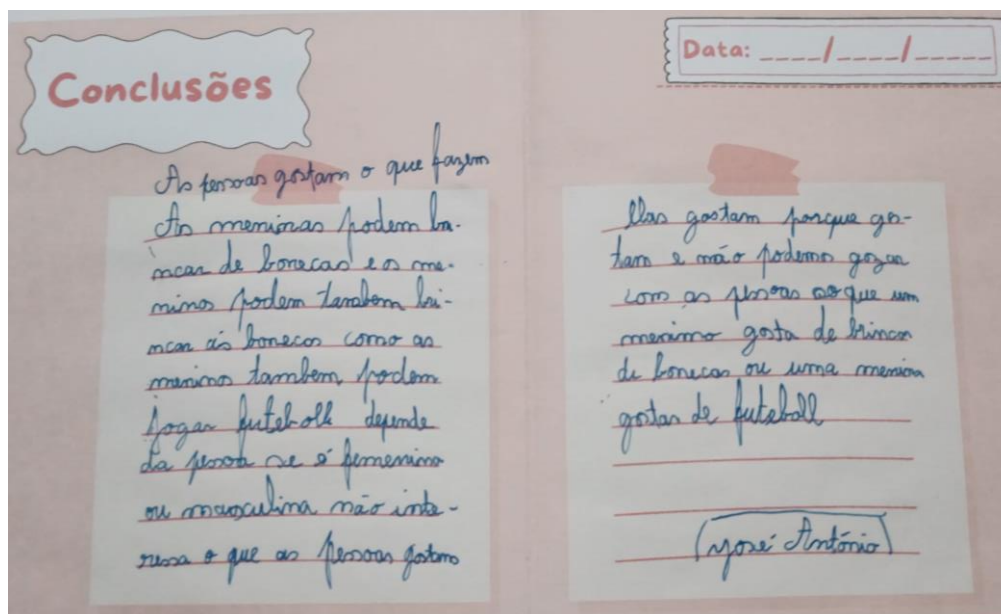 Conclusões
Data: ____/____/_____
As pessoas gostam o que fazem
As meninas podem bri-
ncar de bonecas e os me-
ninos podem tambem bri-
ncar ás bonecas como as
meninas tambem podem
jogar futeboll depende
da pessoa se é femenino
ou masculina não inte-
ressa o que as pessoas gostam
Elas gostam porque gos-
tam e não podemos gozar
com as pessoas que um
menino gosta de brincar
de bonecas ou uma menina
gostar de futeboll
José António